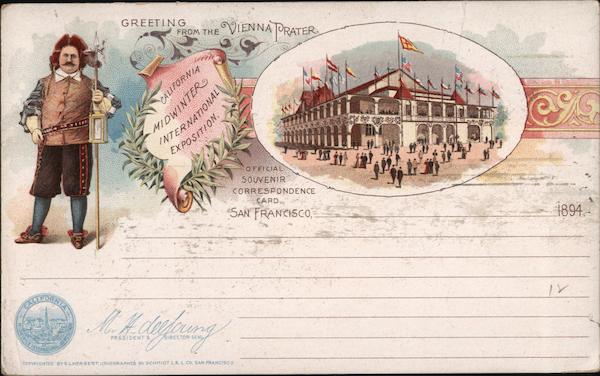 GREETING
FROM THE VIENNA PRATER
CALIFORNIA
MIDWINTER
INTERNATIONAL
EXPOSITION.
OFFICIAL
SOUVENIR
CORRESPONDENCE
CARD.
SAN FRANCISCO,
1894.
12
CALIFORNIA
M. H. de Young
PRESIDENT & DIRECTOR-GENL.
SCHMIDT L. & L. CO. SAN FRANCISCO